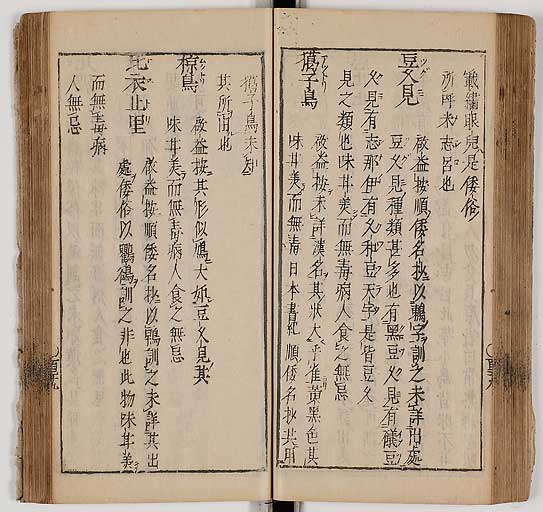 繊繡眼兒是倭俗
所呼未志呂也
豆久見
啟益按順倭名抄以鶫字訓之未詳出處
豆久見種類甚多也有黑豆久見有礒豆
久見有志那伊有久和豆天字是皆豆久
見之類也味甘美而無毒病人食之無忌
獦子鳥
啟益按未詳漢名其狀大乎雀黃黑色其
味甘美而無毒日本書紀順倭名抄共用
獦子鳥未知
其所出也
椋鳥
啟益按其形似鳩大如豆久見其
味甘美而無毒病人食之無忌
比衣止里
啟益按順倭名抄以鵯訓之未詳其出
處倭俗以鸜鵒訓之非也此物味甘美
而無毒病
人無忌